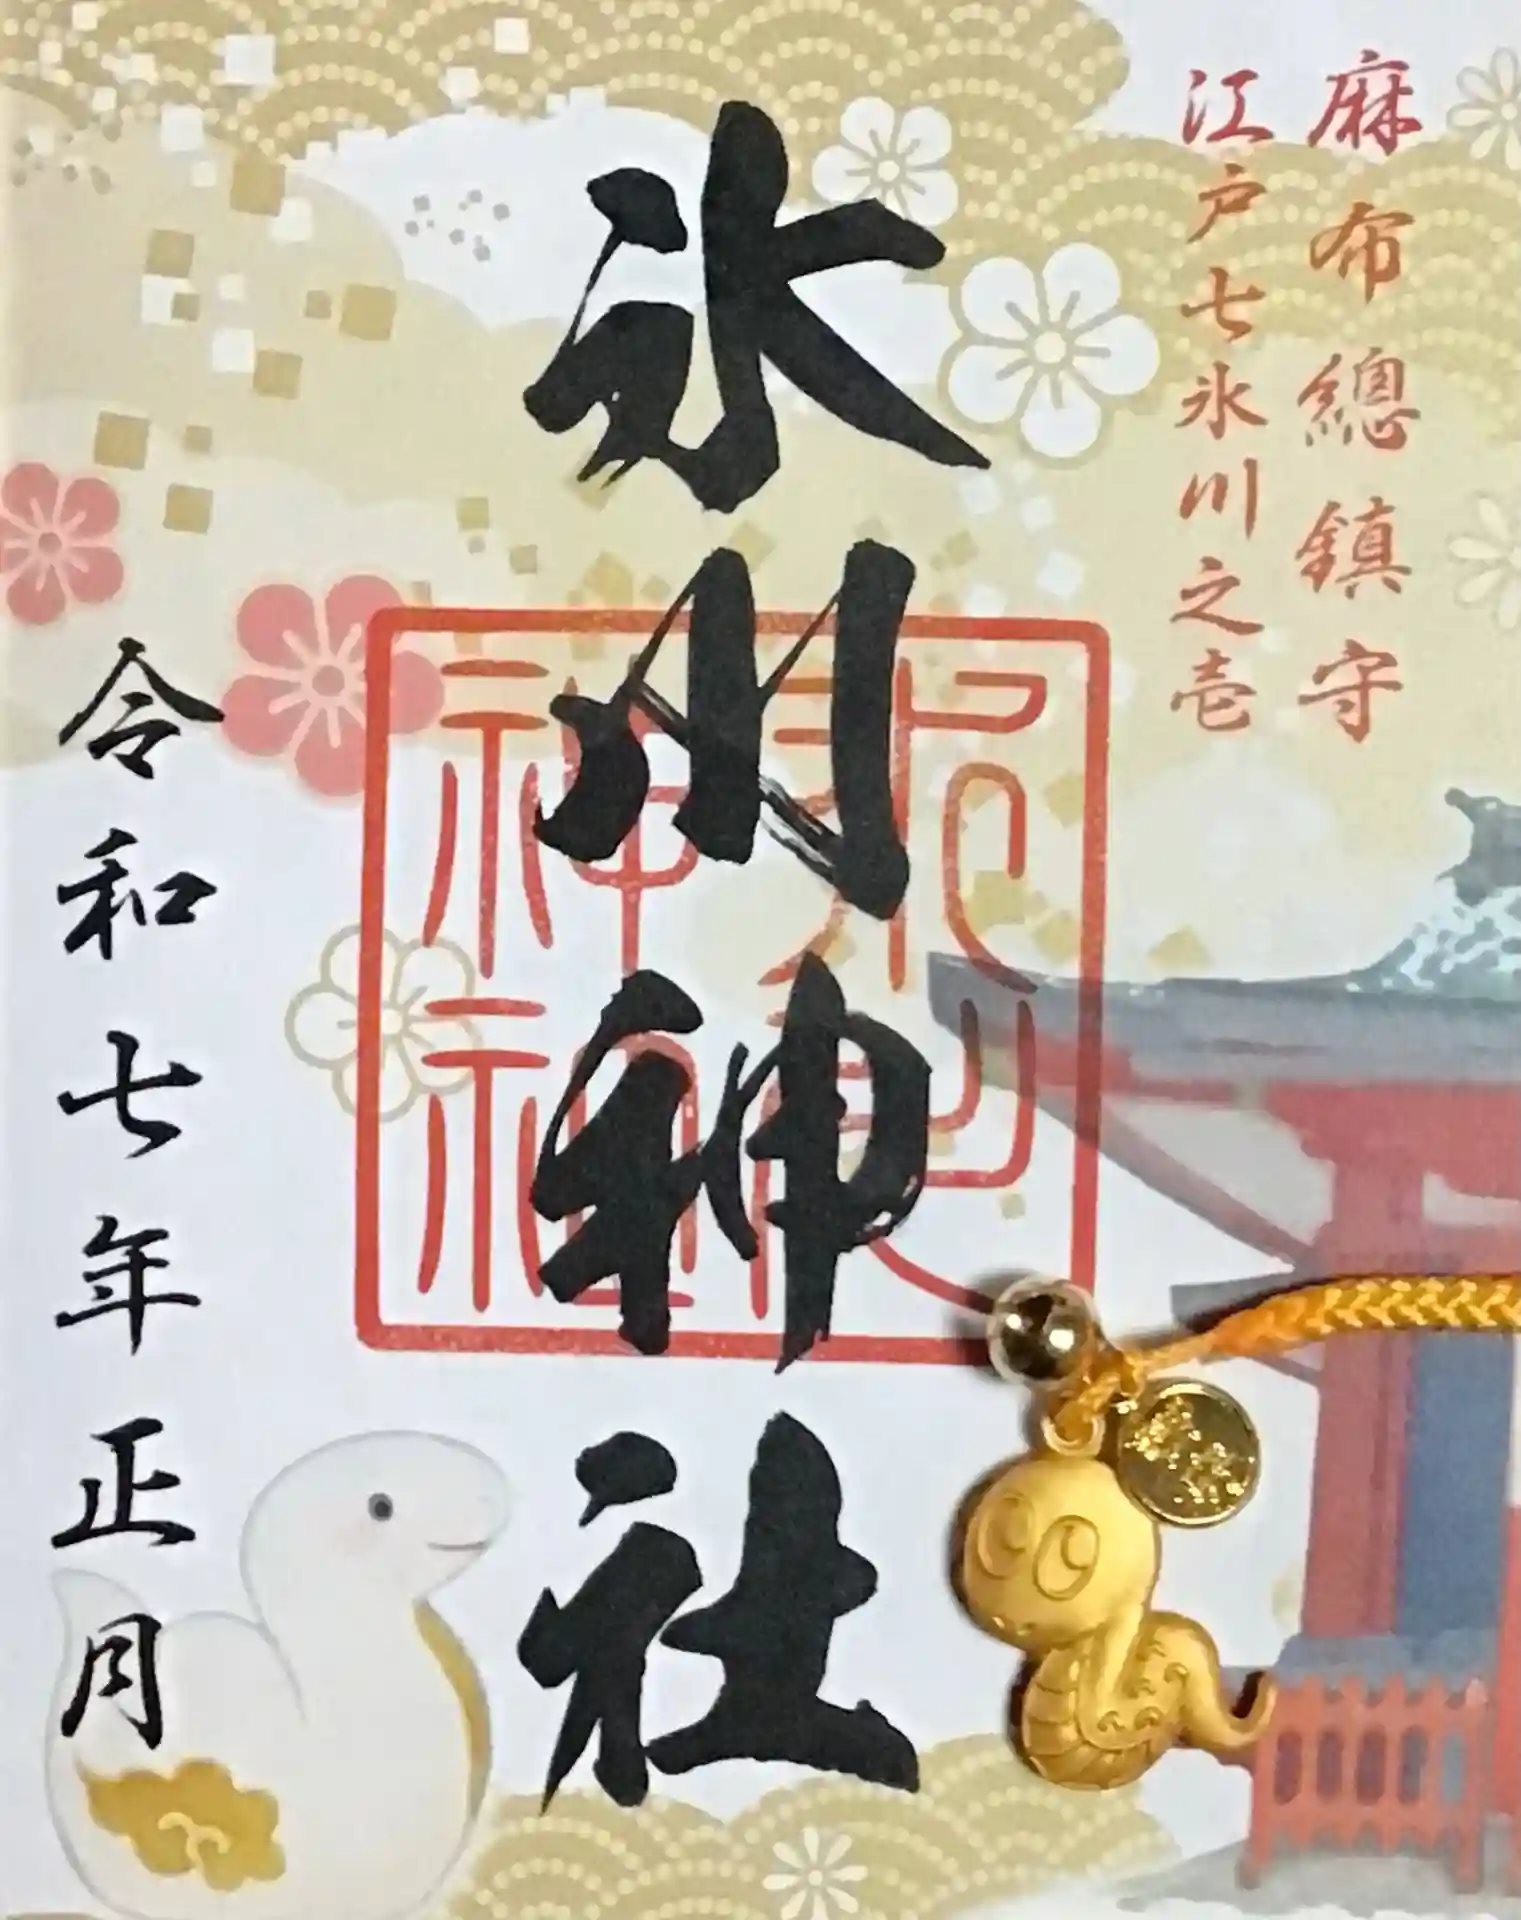 麻布總鎮守
江戸七氷川之壱
氷川神社
令和七年正月